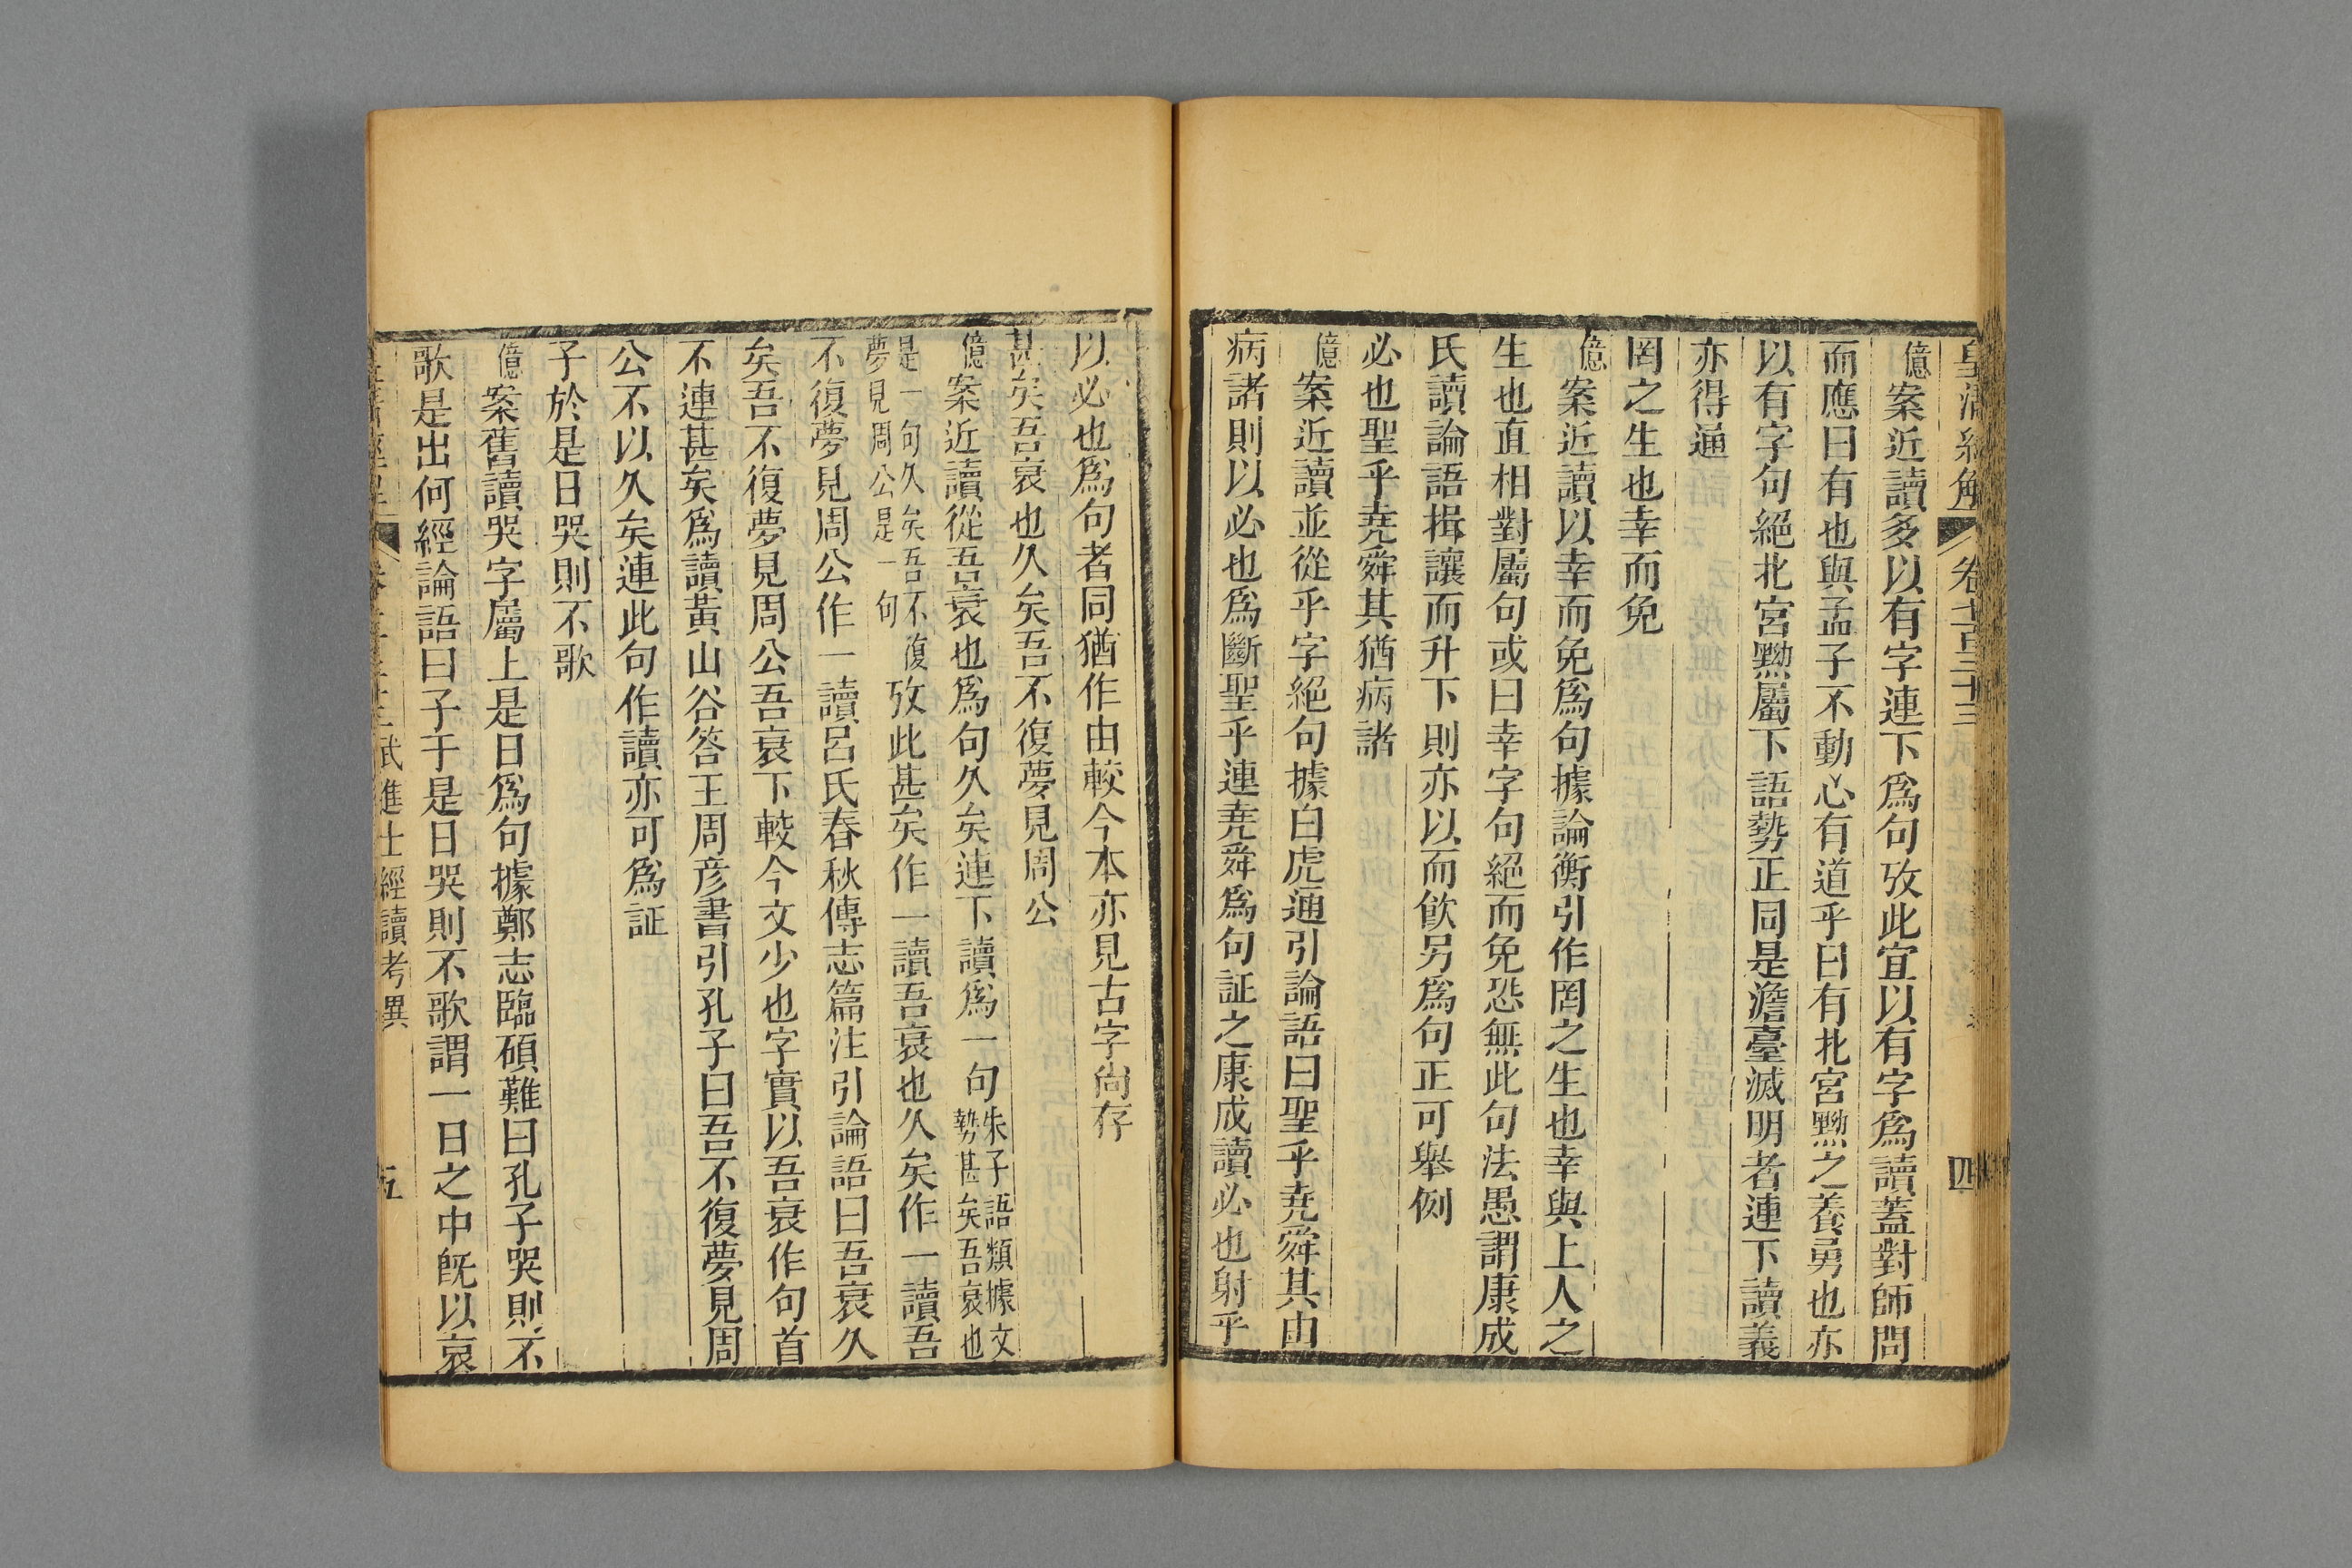 皇清經解 卷七百三十三 四
億案近讀多以有字連下爲句攷此宜以有字爲讀蓋對師問
而應曰有也與孟子不動心有道乎曰有北宮黝之養勇也亦
以有字句絕北宮黝屬下語勢正同是澹臺滅明者連下讀義
亦得通
罔之生也幸而免
億案近讀以幸而免爲句據論衡引作罔之生也幸與上人之
生也直相對屬句或曰幸字句絕而免恐無此句法愚謂康成
氏讀論語揖讓而升下則亦以而飲另爲句正可舉例
必也聖乎堯舜其猶病諸
億案近讀並從乎字絕句據白虎通引論語曰聖乎堯舜其由
病諸則以必也爲斷聖乎連堯舜爲句証之康成讀必也射乎
以必也爲句者同猶作由較今本亦見古字尙存
甚矣吾衰也久矣吾不復夢見周公
億案近讀從吾衰也爲句久矣連下讀爲一句朱子語類據文勢甚矣吾衰也
是一句久矣吾不復夢見周公是一句攷此甚矣作一讀吾衰也久矣作一讀吾
不復夢見周公作一讀呂氏春秋傳志篇注引論語曰吾衰久
矣吾不復夢見周公吾衰下較今文少也字實以吾衰作句首
不連甚矣爲讀黃山谷答王周彥書引孔子曰吾不復夢見周
公不以久矣連此句作讀亦可爲証
子於是日哭則不歌
億案舊讀哭字屬上是日爲句據鄭志臨碩難曰孔子哭則不
歌是出何經論語曰子于是日哭則不歌謂一日之中旣以哀
武進士經讀考異 五